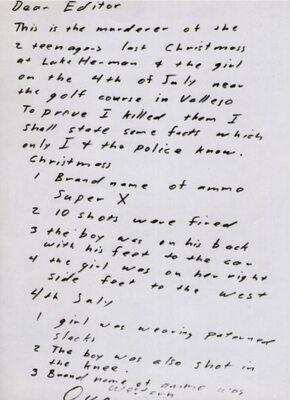 Dear Editor
This is the murderer of the
2 teenagers last Christmass
at Lake Herman & the girl
on the 4th of July near
the golf course in Vallejo
To prove I killed them I
shall state some facts which
only I & the police know.
Christmass
1 Brand name of ammo
Super X
2 10 shots were fired
3 the boy was on his back
with his feet to the car
4 the girl was on her right
side feet to the west
4th July
1 girl was wearing paterned
slacks
2 The boy was also shot in
the knee.
3 Brand name of ammo was
western